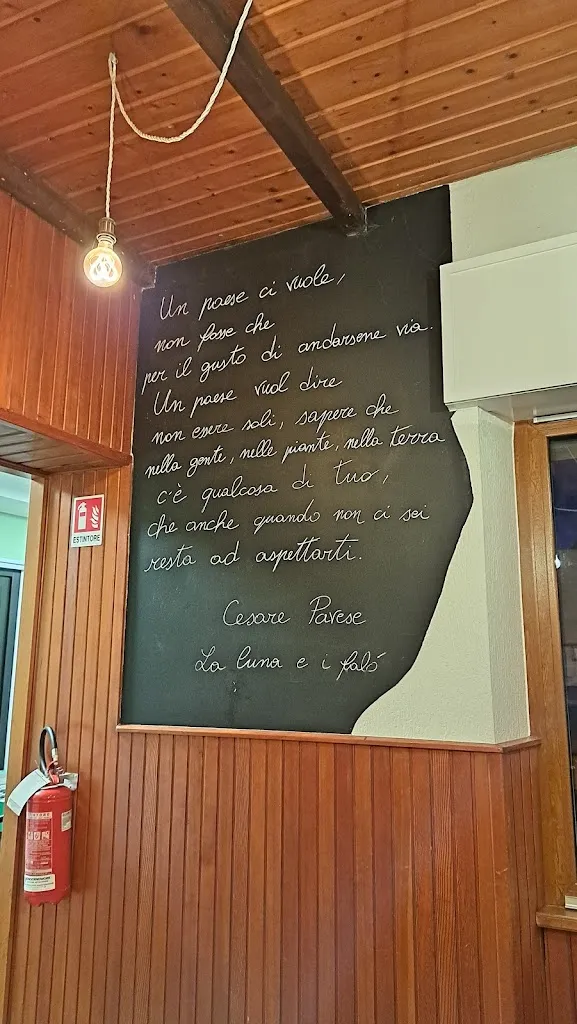 Un paese ci vuole,
non fosse che
per il gusto di andarsene via.
Un paese vuol dire
non essere soli, sapere che
nella gente, nelle piante, nella terra
c'è qualcosa di tuo,
che anche quando non ci sei
resta ad aspettarti.
Cesare Pavese
La luna e i falò
ESTINTORE